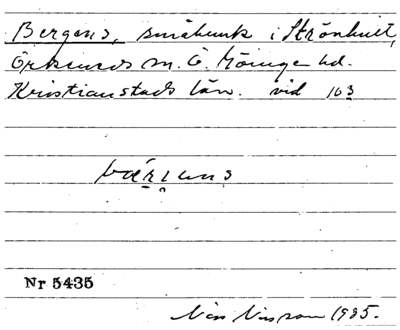 Bergens, småbruk i Strönhult,
Örkeneds sn. Ö. Göinge hd.
Kristianstads län. vid 103
bæ̀rɪ̭ens
Nr 5435
Nils Nilsson 1935.